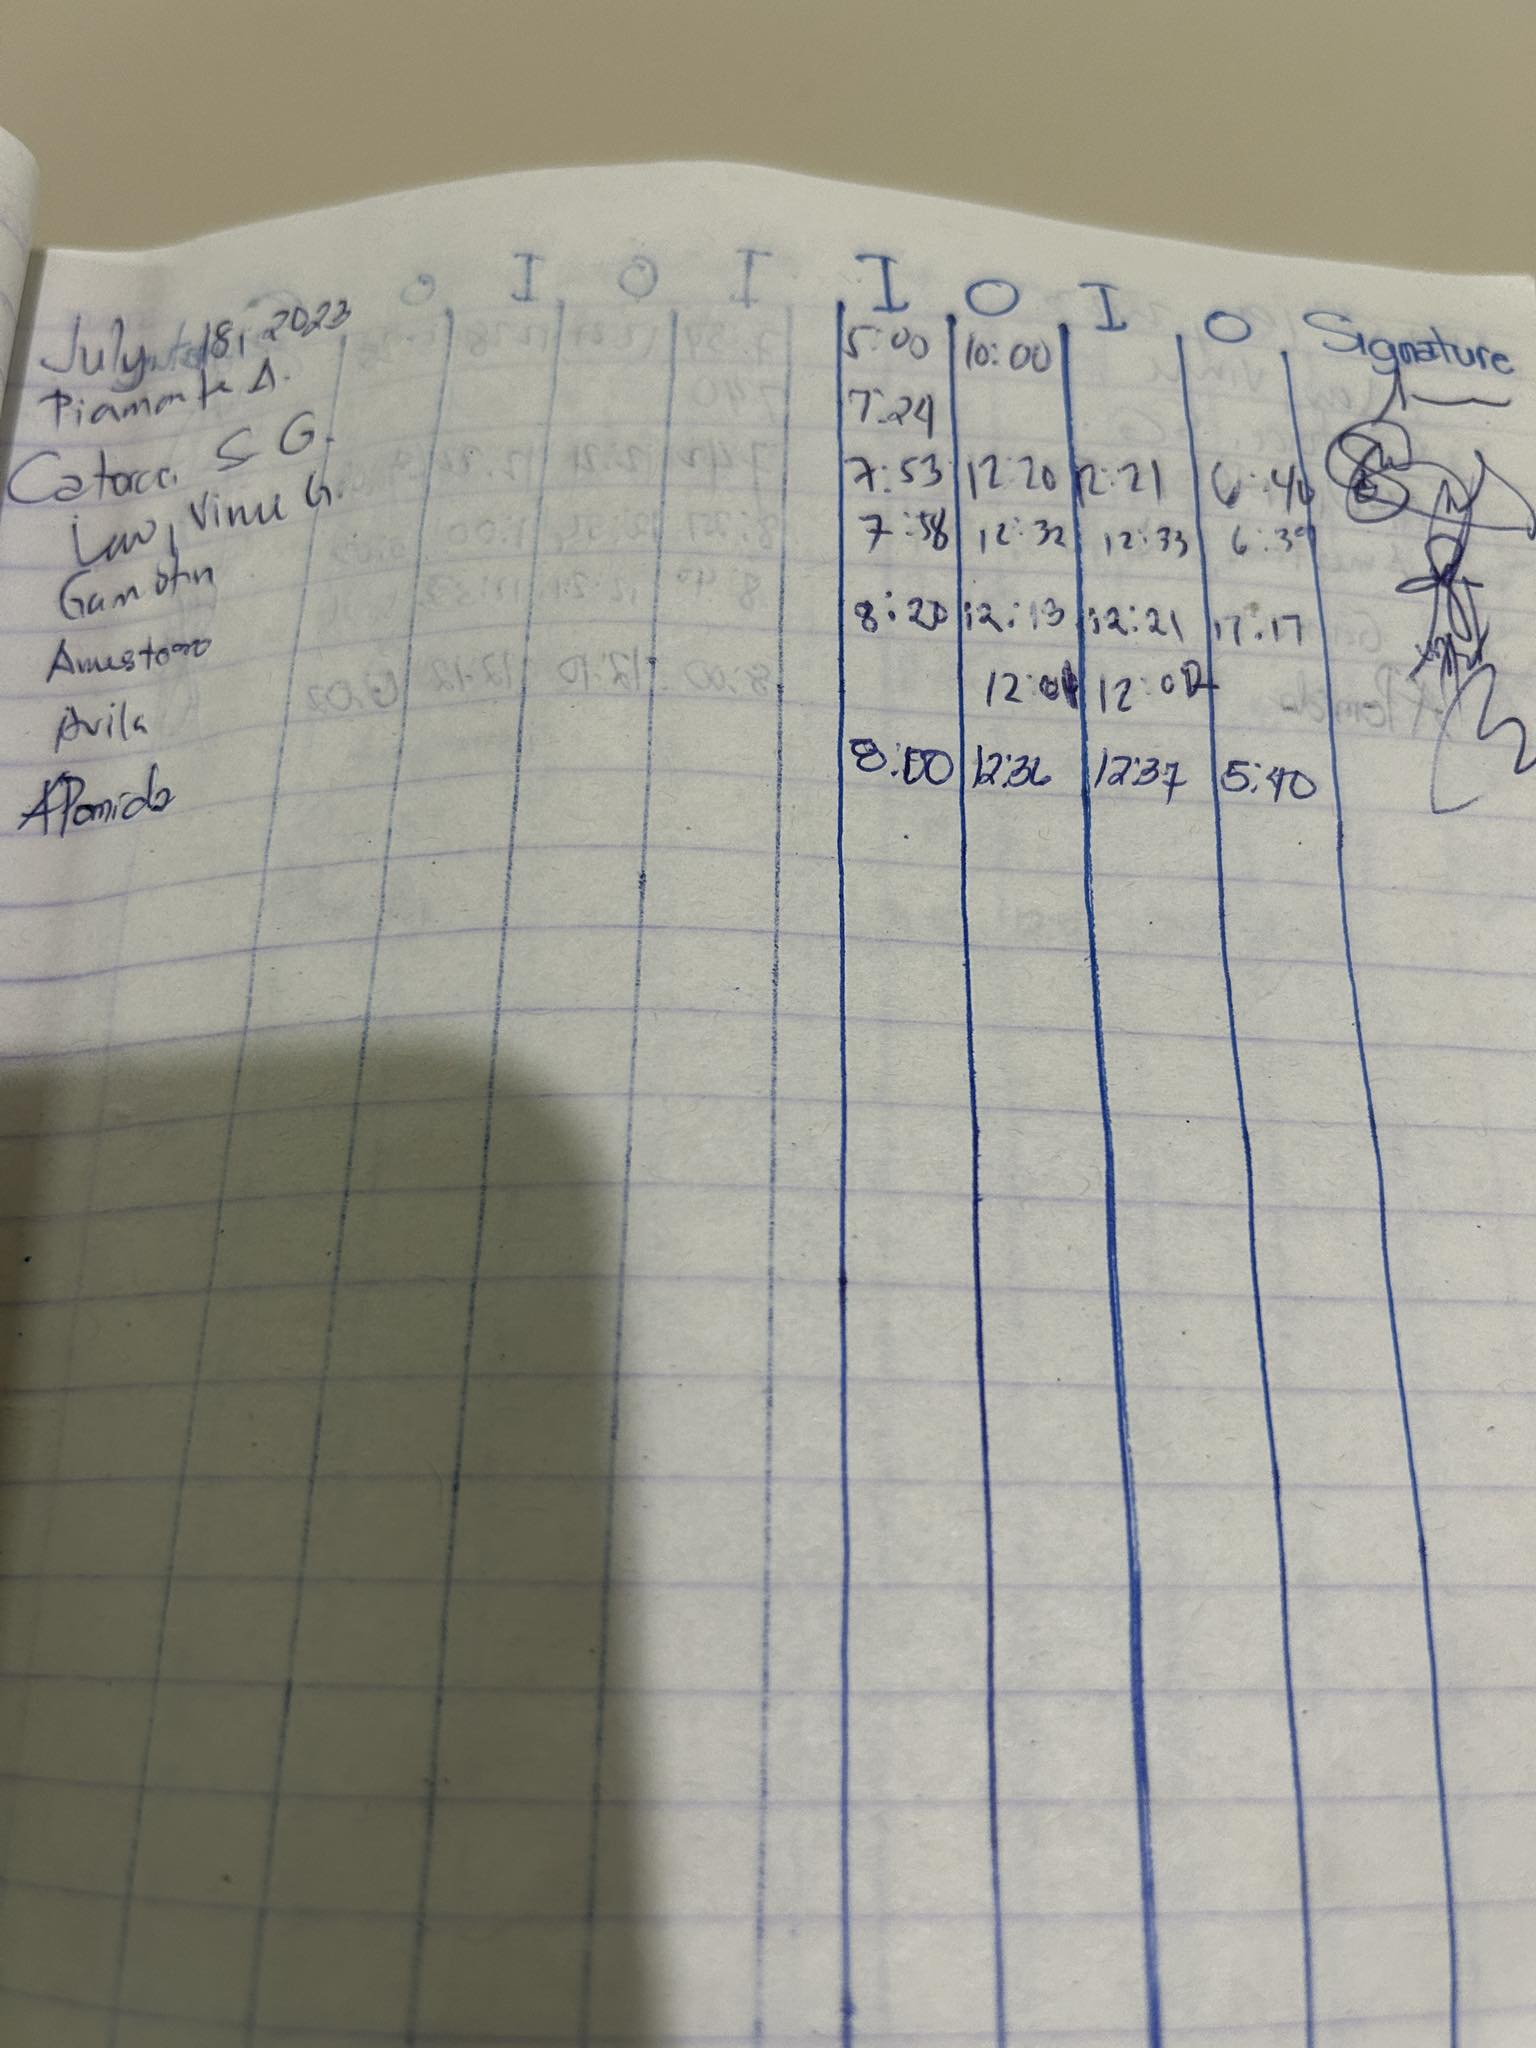 I O I O Signature
July 18, 2023
Piamonte A. 5:00 10:00
Catorce, S G. 7:24
Law, Vinu G. 7:53 12:20 12:21 6:40
Gamotin 7:58 12:32 12:33 6:39
Amestoso 8:20 12:13 12:21 17:17
Avila 12:01 12:02
APomida 8:00 12:36 12:37 5:40